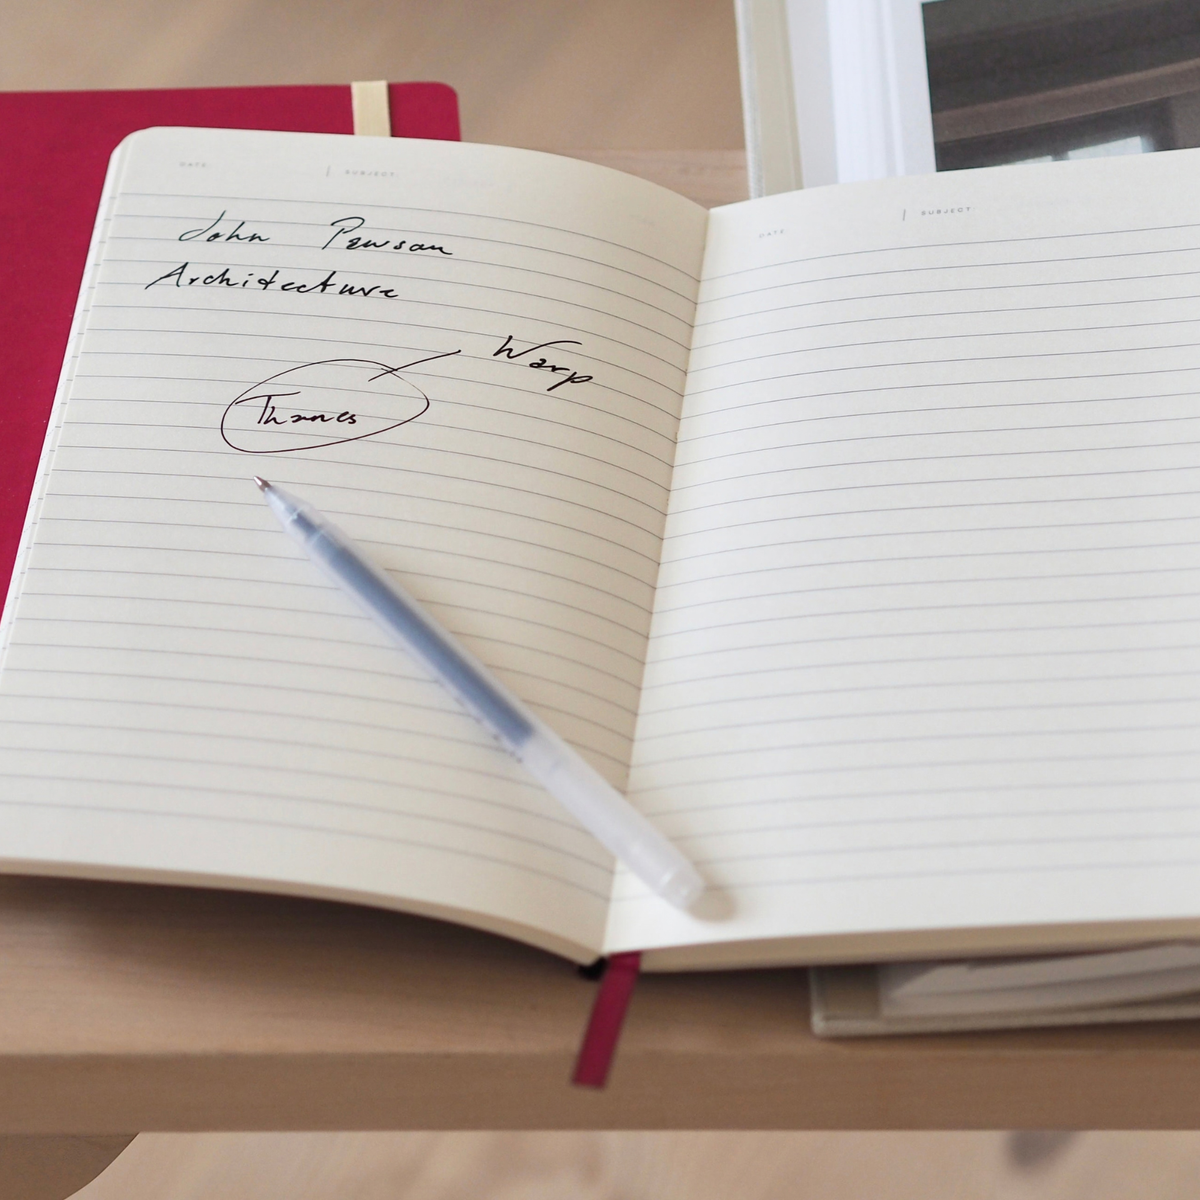 DATE | SUBJECT
John Pawson
Architecture
Warp
Thames
DATE | SUBJECT